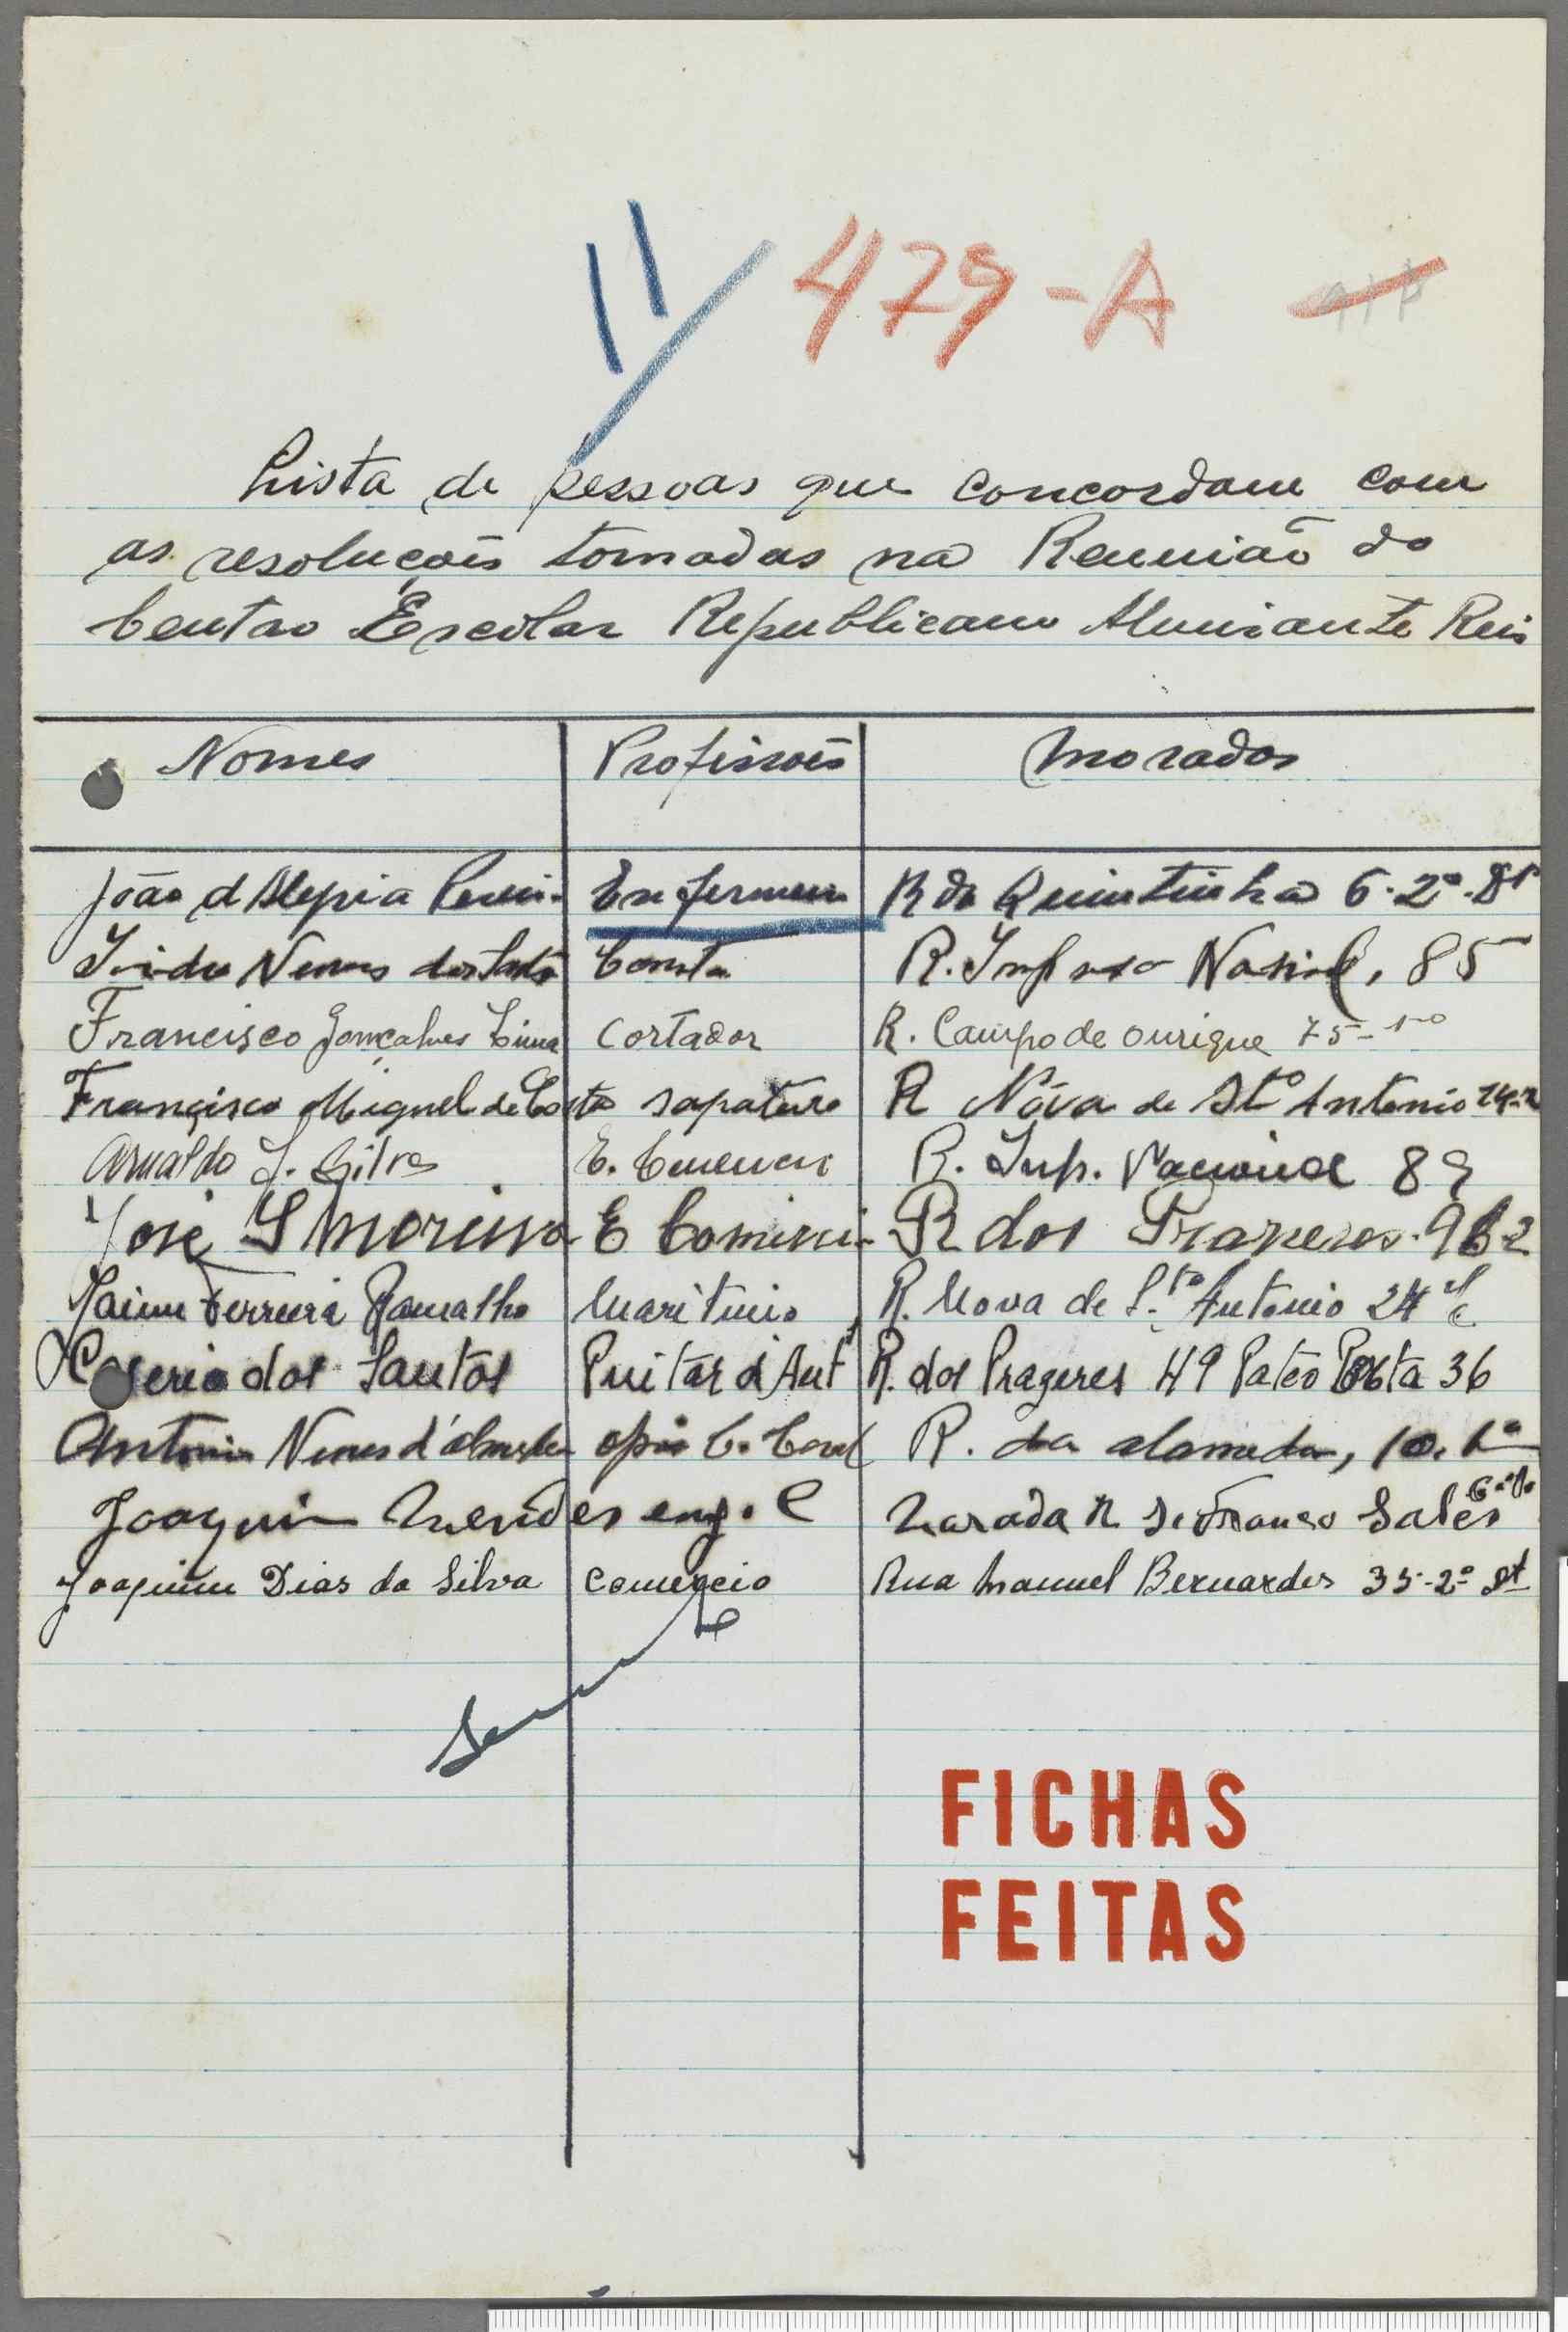 11 479-A
Lista de pessoas que concordam com
as resoluçoĩs tomadas na Reunião do
Centro Escolar Republicano Almirante Reis
Nomes Profissoẽs Moradas
João d Enfermeiro R da Quintinha 6-2º-Dt
Nunes Costa R. Nacional, 85
Francisco Gonçalves Lima Cortador R. Campo de Ourique 75-1º
Francisco Miguel da Costa sapateiro R Nóva de Stº Antonio
Arnaldo J. Silva E. R. Imp. Nacional 89
José S Moreira E R dos Prazeres
Jaime Ferreira Ramalho Maritimo R. Nova de S.to Antonio 24
dos Santos Pintôr d'Aut R. dos Prazeres 49 Pateo Porta 36
Antonio Nunes d'Almeida R. da alameda, 10. 1º
Joaquim Mendes emp. C Morada R Franco Sales
Joaquim Dias da Silva Comercio Rua Manuel Bernardes 35-2º
FICHAS
FEITAS